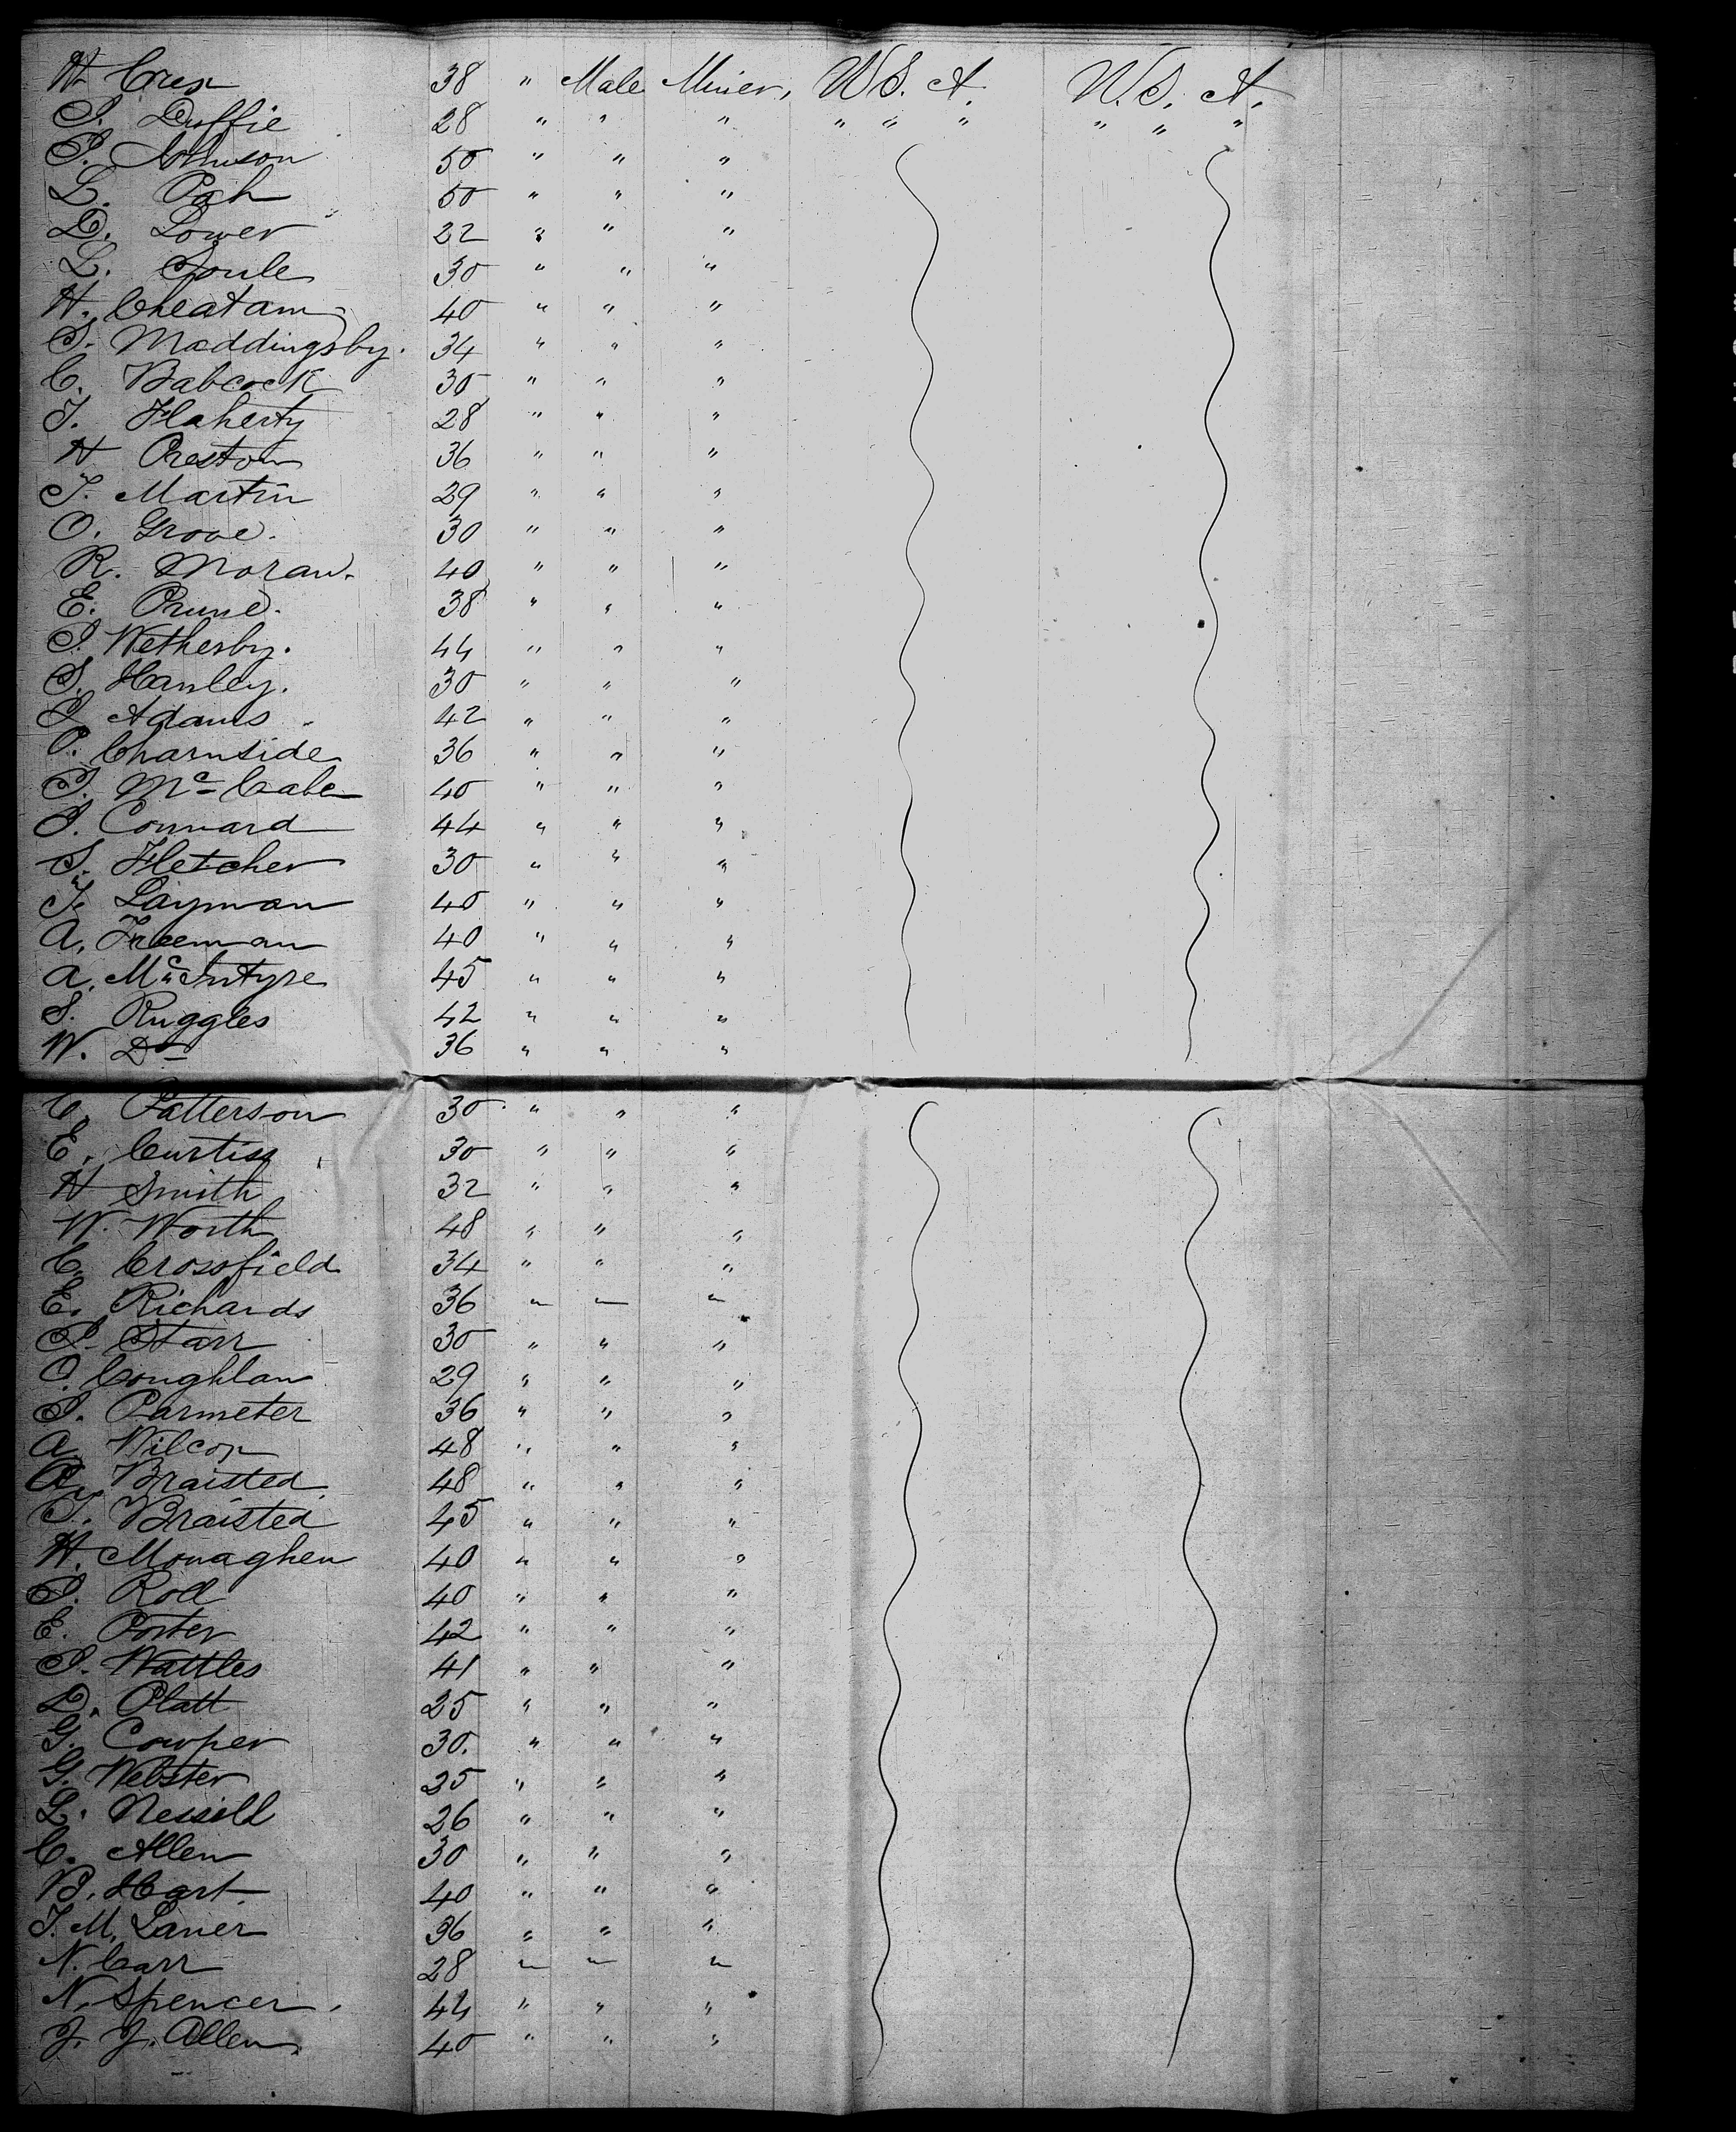 H Cresx 38 " Male Miner, U.S. A. U.S. A.
S. Duffie 28 " " " " " " " " "
S. Johnson 50 " " "
L. Pah 50 " " "
D. Lower 22 " " "
L. Soule 30 " " "
H. Cheatam 40 " " "
S. Maddingsby. 34 " " "
C. Babcock 30 " " "
T. Flaherty 28 " " "
H Preston 36 " " "
T. Martin 29 " " "
O. Grove. 30 " " "
R. Moran. 40 " " "
E. Prune. 38 " " "
S. Wetherby. 44 " " "
S. Hanley. 30 " " "
S. Adams 42 " " "
P. Charnside 36 " " "
T. Mc Cabe 40 " " "
S. Connard 44 " " "
S. Fletcher 30 " " "
T. Layman 40 " " "
A. Freeman 40 " " "
A. McIntyre 45 " " "
S. Ruggles 42 " " "
W. Do 36 " " "
C. Patterson 30 " " "
E. Curtiss 30 " " "
H Smith 32 " " "
W. Worth 48 " " "
C. Crossfield 34 " " "
E. Richards 36 " " "
S. Starr 30 " " "
O. Coughlan 29 " " "
S. Parmeter 36 " " "
A. Wilcox 48 " " "
A. Braisted 48 " " "
T. Braisted 45 " " "
H. Monaghen 40 " " "
S. Rod 40 " " "
E. Porter 42 " " "
S. Wattles 41 " " "
D. Platt 25 " " "
G. Cowper 30. " " "
G. Webster 25 " " "
L. 26 " " "
C. Allen 30 " " "
B. Hart 40 " " "
T. M. Laner 36 " " "
N. Carr 28 " " "
N. Spencer. 44 " " "
J. J. Allen. 40 " " "